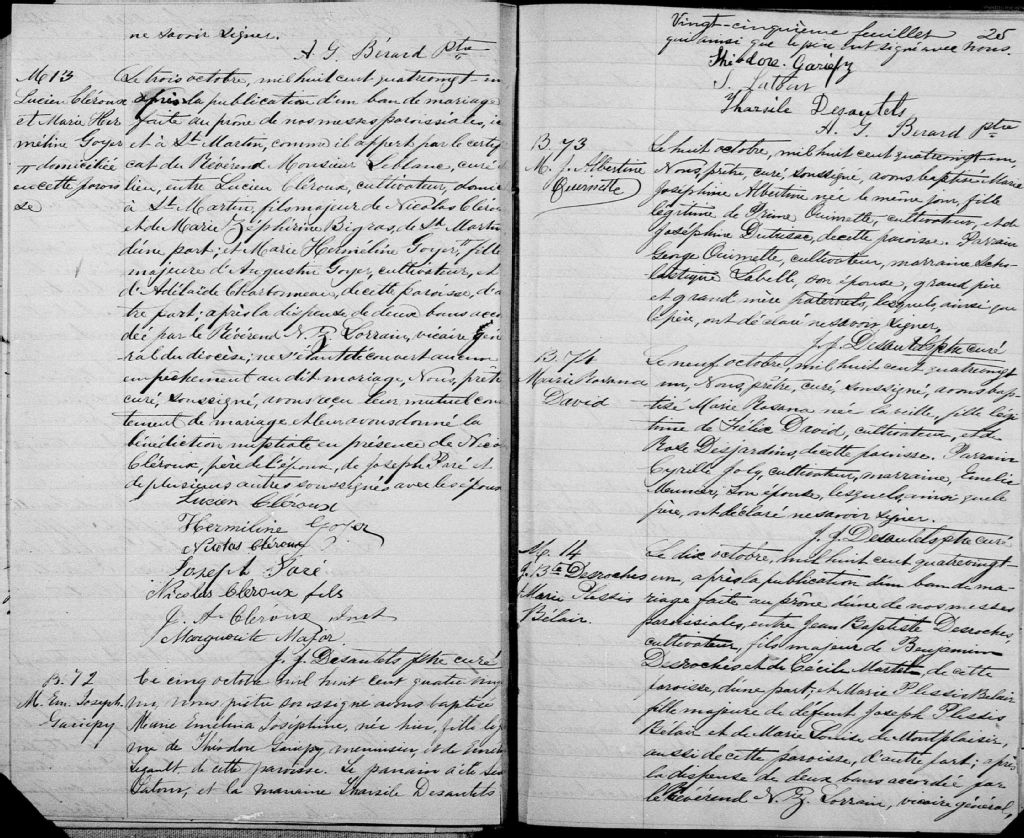 ne savoir signer.
A G Bérard Ptre
M 13
Lucien Cléroux
et Marie Her
méline Goyer
π domiciliée
en cette parois
se
Le trois octobre, mil huit cent quatrevingt un
après la publication d'un ban de mariage
faite au prône de nos messes paroissiales, ic
et à St. Martin, comme il appert par le certifi
cat du Révérend Monsieur Leblanc, curé
lieu, entre Lucien Cléroux, cultivateur, domi
à St. Martin, fils majeur de Nicolas Cléro
et de Marie Zéphirine Bigras, de St. Martin
d'une part; et Marie Herméline Goyer, π fille
majeure d'Augustin Goyer, cultivateur, et
d'Adélaïde Charbonneau, de cette paroisse, d'au
tre part; après la dispense de deux bans accor
dée par le Révérend N. Z. Lorrain, vicaire géné
ral du diocèse; ne s'étant découvert aucun
empêchement au dit mariage, Nous, prêtre
curé, soussigné, avons reçu leur mutuel con
tement de mariage et leur avons donné la
bénédiction nuptiale en présence de Nico
Cléroux, père de l'époux, de Joseph Paré et
de plusieurs autres soussignés avec les époux
Lucien Cléroux
Hermiline Goyer
Nicolas Cléroux
Joseph Paré
Nicolas Cléroux fils
J. A. Cléroux Inst
Marguerite Major
J. J. Desautels ptre curé
B. 72
M. Em. Joseph.
Gariépy
Ce cinq octobre mil huit cent quatre vingt
un, nous prêtre soussigné avons baptisé
Marie Emélina Joséphine, née hier, fille légi
me de Théodore Gariépy, menuisier, et de
Legault de cette paroisse. Le parrain a été
Latour, et la marraine Tharsile Desautels
Vingt-cinquième feuillet 25
qui ainsi que le père ont signé avec nous.
Théodore Gariépy
J. Latour
Tharsile Desautels
A. G. Bérard ptre
B. 73
M. J. Albertine
Ouimette
Le huit octobre, mil huit cent quatrevingt-un,
Nous, prêtre, curé, soussigné, avons baptisé Marie
Joséphine Albertine née le même jour, fille
légitime de Prime Ouimette, cultivateur, et de
Joséphine Dutrisac, de cette paroisse. Parrain
George Ouimette, cultivateur, marraine Scho-
lastique Labelle, son épouse, grand père
et grand mère paternels, lesquels, ainsi que
le père, ont déclaré ne savoir signer.
J. J. Desautels ptre curé
B. 74
Marie Rosana
David
Le neuf octobre, mil huit cent quatrevingt
un, Nous, prêtre, curé, soussigné, avons bap-
tisé Marie Rosana née la veille, fille légi-
time de Félix David, cultivateur, et de
Rose Desjardins, de cette paroisse. Parrain
Cyrille Joly, cultivateur, marraine, Emelie
Meunier, son épouse, lesquels, ainsi que le
père, ont déclaré ne savoir signer.
J. J. Desautels ptre curé
M. 14
J. Bte Desroches
Marie Plessis
Bélair.
Le dix octobre, mil huit cent quatrevingt
un, après la publication d'un ban de ma-
riage faite au prône d'une de nos messes
paroissiales, entre Jean Baptiste Desroches,
cultivateur, fils majeur de Benjamin
Desroches et de Cécile Martel, de cette
paroisse, d'une part; et Marie Plessis Belair
fille majeure de défunt Joseph Plessis
Belair et de Marie Louise de Montplaisir,
aussi de cette paroisse, d'autre part; après
la dispense de deux bans accordée par
le Révérend N. Z. Lorrain, vicaire général,